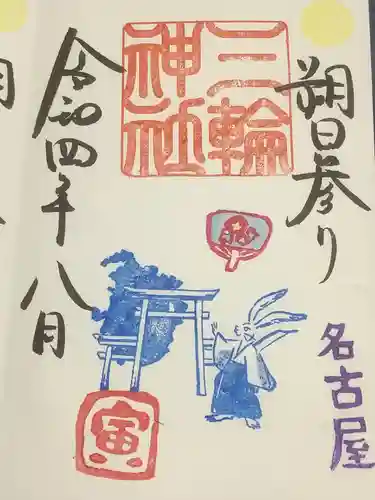 朔日参り
三輪
神社
令和四年八月
名古屋
寅